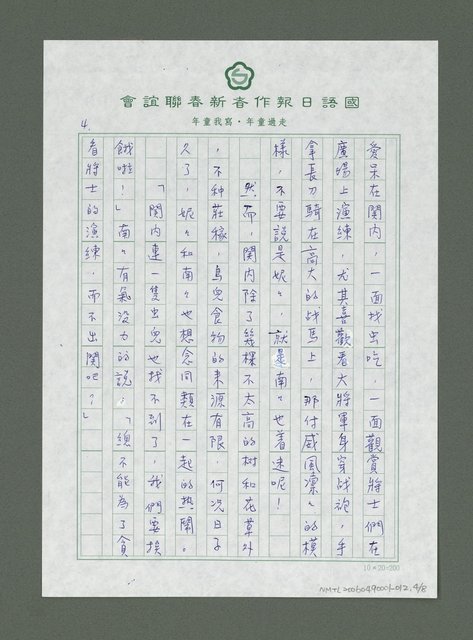 國語日報作者新春聯誼會
走過童年・寫我童年
4.
愛呆在関内，一面找虫吃，一面觀賞將士們在
廣場上演練，尤其喜歡看大將軍身穿战袍，手
拿長刀騎在高大的战馬上，那付威風凛々的模
樣，不要說是妮々，就是南々也着迷呢！
然而，関内除了幾棵不太高的树和花草外
，不种莊稼，鳥兒食物的來源有限，何况日子
久了，妮々和南々也想念同類在一起的热閙。
「関内連一隻虫兒也找不到了，我們要挨
餓啦！」南々有氣没力的說，「總不能為了貪
看將士的演練，而不出関吧？」
10×20=200
NMTL20060490001-012, 4/8